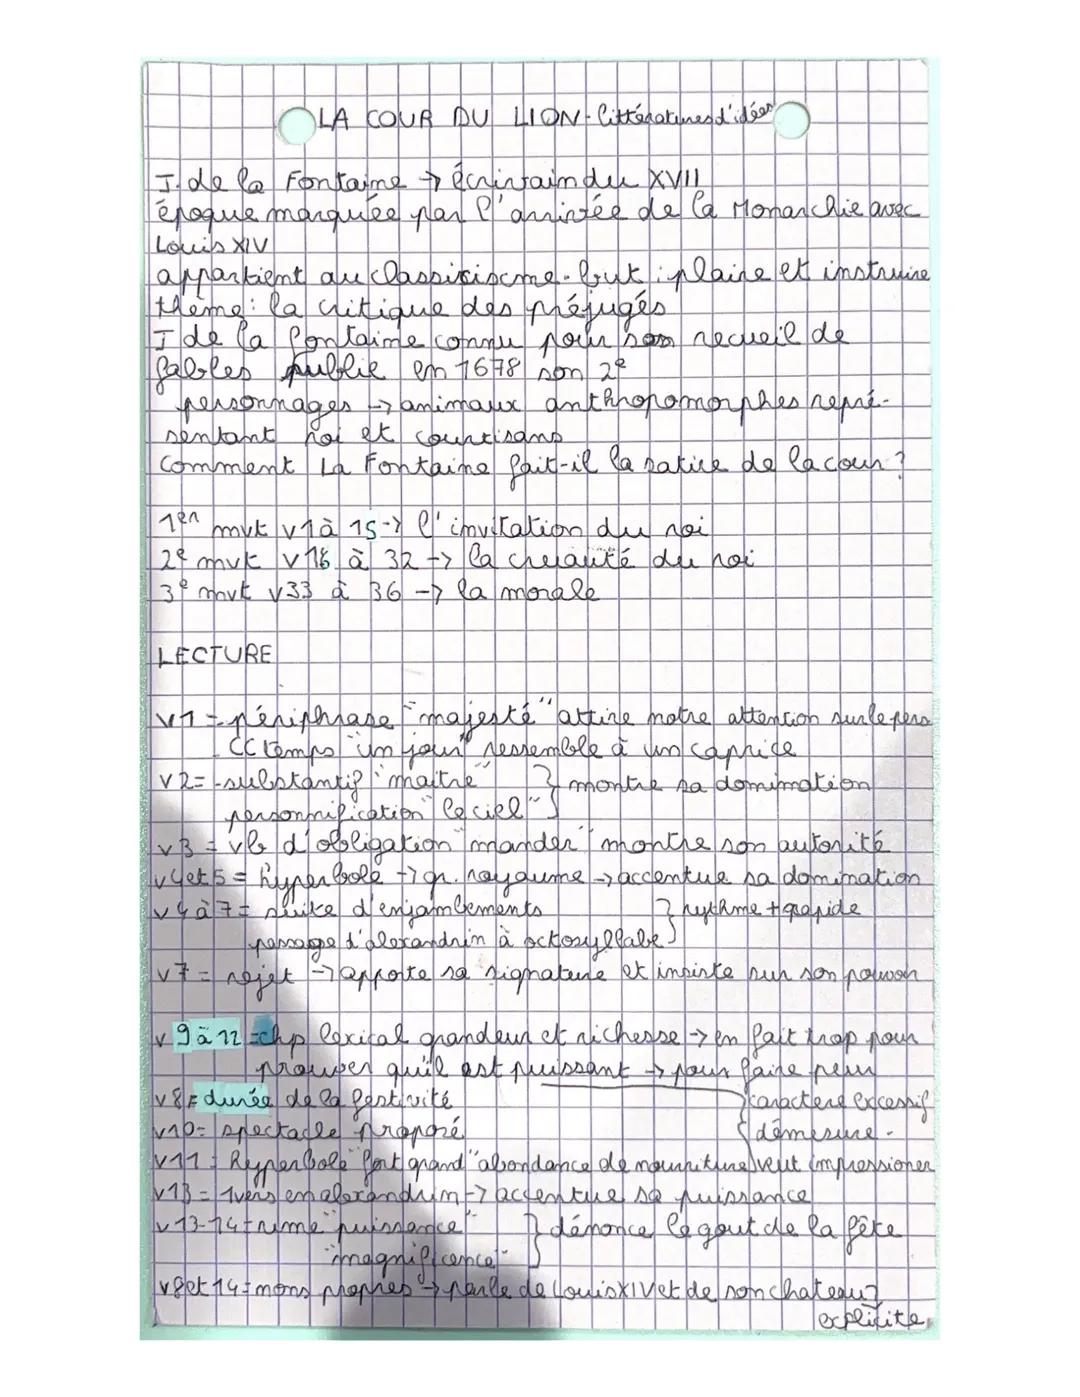 LA COUR DU LION - littératures d'idées
J. de la Fontaine → écrivain du XVII
époque marquée par l'arrivée de la Monarchie avec
Louis XIV
appartient au classiciscme - but : plaire et instruire
thème : la critique des préjugés
J de la fontaine connu pour son recueil de
fables publié en 1678 son 2e
personnages → animaux anthropomorphes repré-
sentant roi et courtisans
comment La Fontaine fait-il la satire de la cour ?
1er mvt v1 à 15 → l'invitation du roi
2e mvt v16 à 32 → la cruauté du roi
3e mvt v33 à 36 → la morale
LECTURE
v1 = périphrase "majesté" attire notre attention sur le pers
- CC temps "un jour" ressemble à un caprice
v2 = - substantif "maitre" } montre sa domination
personnification "le ciel"
v3 = vb d'obligation "mander" montre son autorité
v4 et 5 = hyperbole → gr. royaume → accentue sa domination
v4 à 7 = suite d'enjambements } rythme + rapide
passage d'alexandrin à octosyllabe
v7 = rejet → apporte sa signature et insiste sur son pouvoir
v 9 à 12 = chp lexical grandeur et richesse → en fait trop pour
prouver qu'il est puissant → pour faire peur
v8 = durée de la festivité { caractère excessif
v10 = spectacle proposé démesure -
v11 = Hyperbole "fort grand" abondance de nourriture veut impressioner
v13 = 1 vers en alexandrin → accentue sa puissance
v13-14 = rime "puissance" } dénonce le gout de la fête
"magnificence"
v8 et 14 = mons propres → parle de Louis XIV et de son chateau
explicite